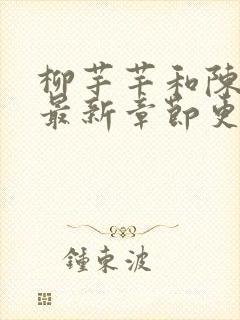 柳芊芊和陈
最新章節更
鍾東波